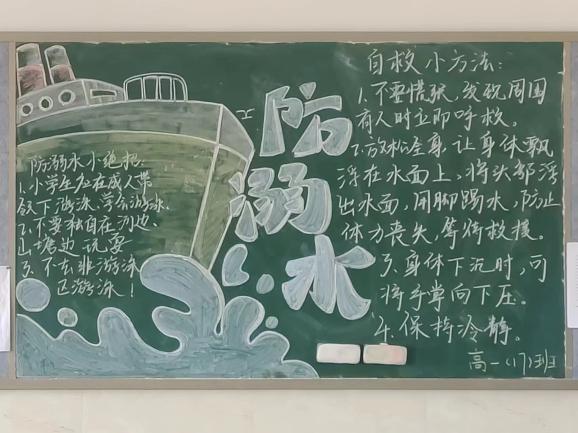 防溺水
防溺水小绝招:
1.小学生应在成人带
领下游泳、学会游泳。
2.不要独自在河边、
山塘边玩耍
3.不去非游泳
区游泳!
自救小方法:
1.不要慌张,发现周围
有人时立即呼救。
2.放松全身,让身体飘
浮在水面上,将头部浮
出水面,用脚踢水,防止
体力丧失,等待救援。
3.身体下沉时,可
将手掌向下压。
4.保持冷静。
高一(17)班